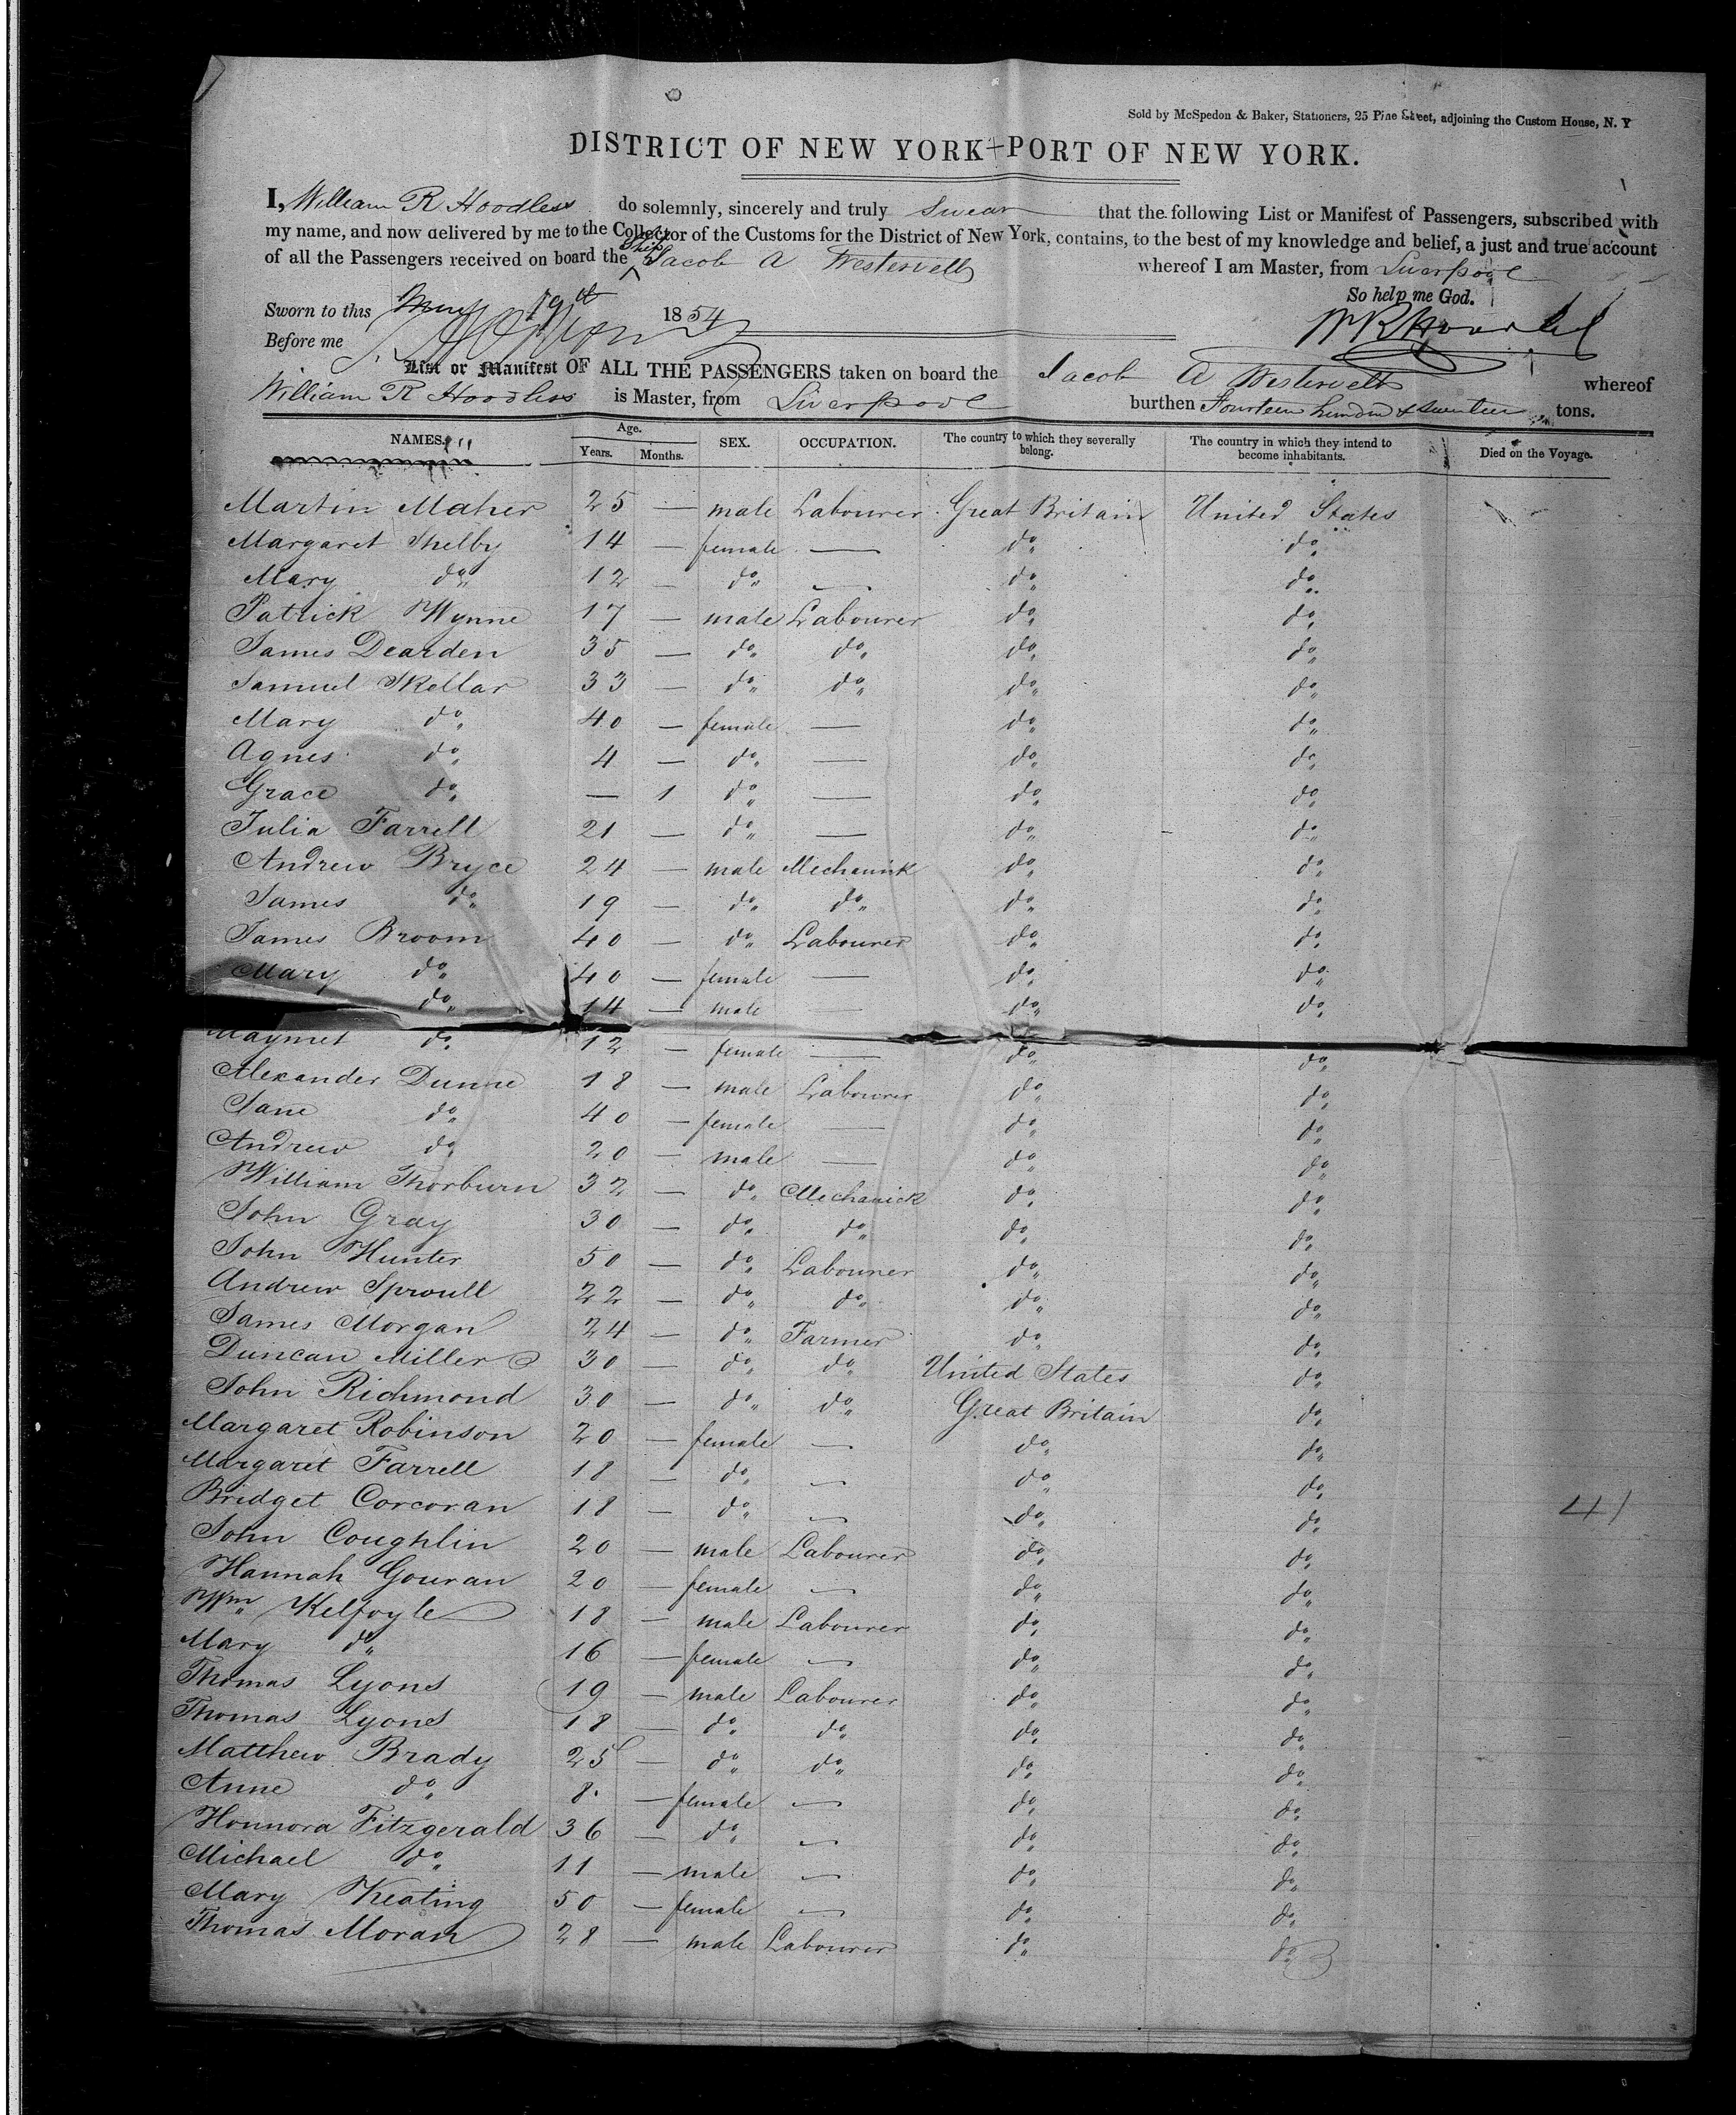 Sold by McSpedon & Baker, Stationers, 25 Pine Street, adjoining the Custom House, N. Y
DISTRICT OF NEW YORK—PORT OF NEW YORK.
I, William R Hoodless do solemnly, sincerely and truly swear that the following List or Manifest of Passengers, subscribed with
my name, and now delivered by me to the Collector of the Customs for the District of New York, contains, to the best of my knowledge and belief, a just and true account
of all the Passengers received on board the Ship Jacob A Westervelt whereof I am Master, from Liverpool
So help me God.
Sworn to this May 19th 1854
Before me
List or Manifest OF ALL THE PASSENGERS taken on board the Jacob A Westervelt whereof
William R Hoodless is Master, from Liverpool burthen Fourteen hundred & seventeen tons.
NAMES. Age. Years. Months. SEX. OCCUPATION. The country to which they severally belong. The country in which they intend to become inhabitants. Died on the Voyage.
Martin Maher 25 — male Labourer Great Britain United States
Margaret Shelby 14 — female — do do
Mary do 12 — do — do do
Patrick Wynne 17 — male Labourer do do
James Dearden 35 — do do do do
Samuel Skellar 33 — do do do do
Mary do 40 — female — do do
Agnes do 4 — do — do do
Grace do — 1 do — do do
Julia Farrell 21 — do — do do
Andrew Bryce 24 — male Mechanick do do
James do 19 — do do do do
James Broom 40 — do Labourer do do
Mary do 40 — female — do do
do 14 — male — do do
do 12 — female — do do
Alexander Dunne 18 — male Labourer do do
Jane do 40 — female — do do
Andrew do 20 — male — do do
William Thorburn 32 — do Mechanick do do
John Gray 30 — do do do do
John Hunter 50 — do Labourer do do
Andrew Sproull 22 — do do do do
James Morgan 24 — do Farmer do do
Duncan Miller 30 — do do United States do
John Richmond 30 — do do Great Britain do
Margaret Robinson 20 — female — do do
Margaret Farrell 18 — do — do do
Bridget Corcoran 18 — do — do do
41
John Coughlin 20 — male Labourer do do
Hannah Gouran 20 — female — do do
Wm Kelfoyle 18 — male Labourer do do
Mary do 16 — female — do do
Thomas Lyons 19 — male Labourer do do
Thomas Lyons 18 — do do do do
Matthew Brady 25 — do do do do
Anne do 8. — female — do do
Honnora Fitzgerald 36 — do — do do
Michael do 11 — male — do do
Mary Keating 50 — female — do do
Thomas Moran 28 — male Labourer do do